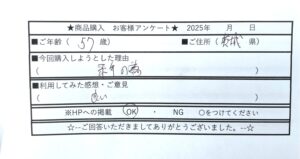 ★商品購入 お客様アンケート★ 2025年 月 日
■ご年齢（57歳） ■ご住所（茨城県）
■今回購入しようとした理由
（ 　の為 ）
■利用してみた感想・ご意見
（ 良い ）
※HPへの掲載 （ OK ・ NG ○をつけてください
☆--ご回答いただきましてありがとうございました。--☆